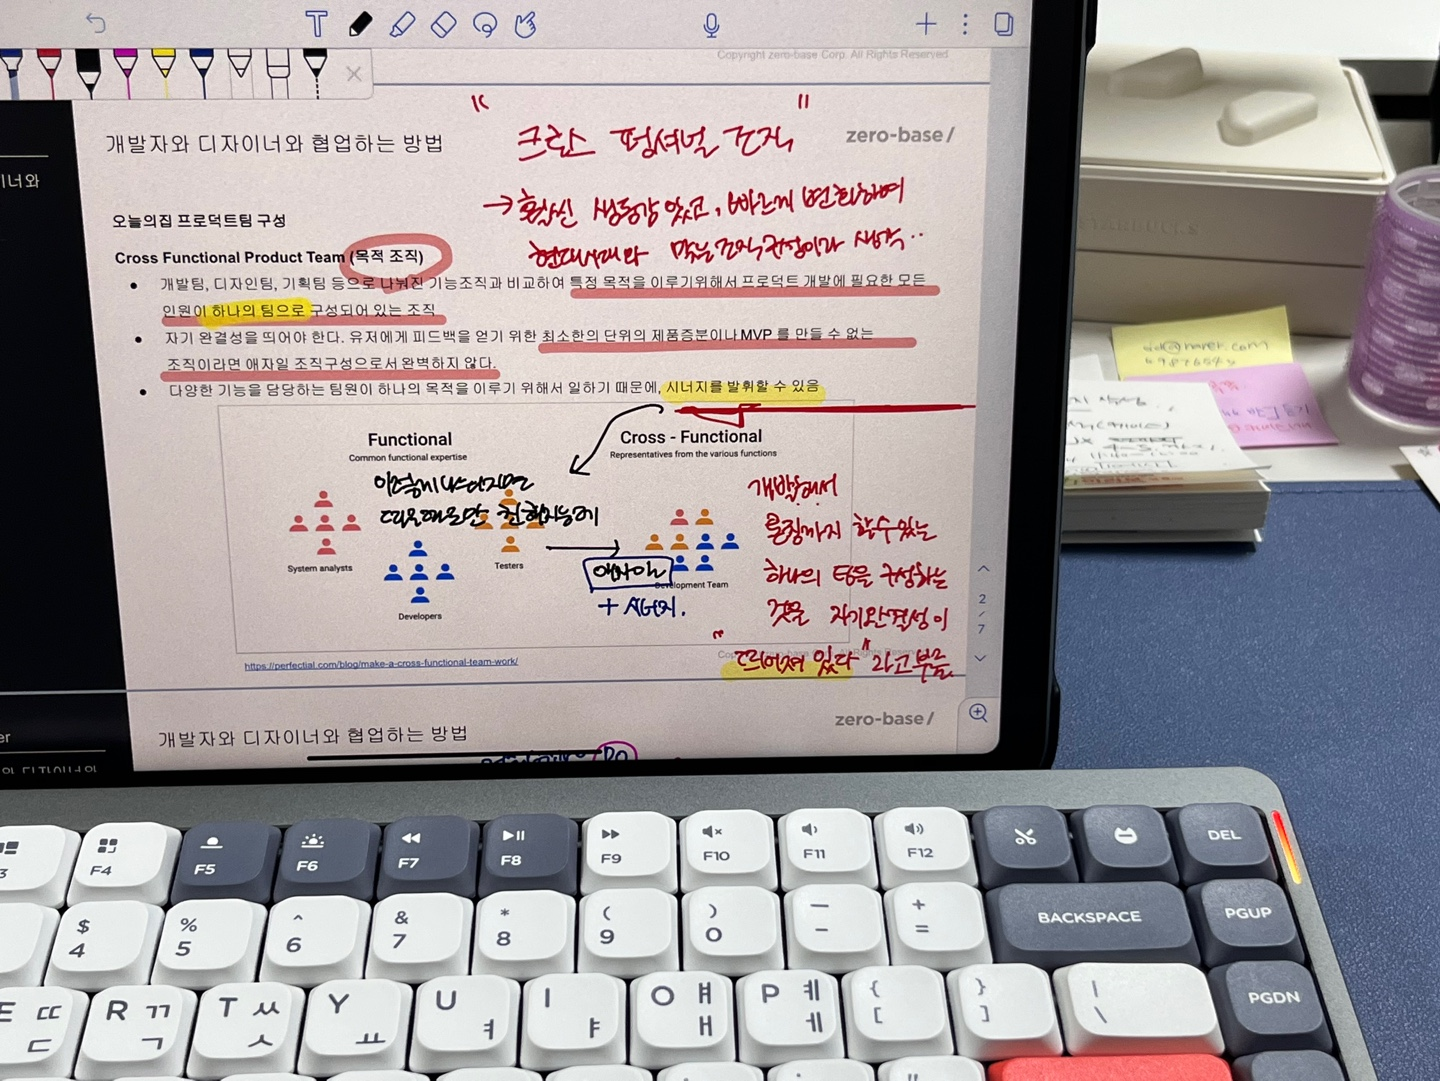 Copyright zero-base Corp. All Rights Reserved
개발자와 디자이너와 협업하는 방법
zero-base/
" 크로스 펑셔널 조직 "
→ 훨씬 생동감 있고, 빠르게 변화하여
현대시대와 맞는 조직구성이라 생각..
너와
오늘의집 프로덕트팀 구성
Cross Functional Product Team (목적 조직)
● 개발팀, 디자인팀, 기획팀 등으로 나눠진 기능조직과 비교하여 특정 목적을 이루기위해서 프로덕트 개발에 필요한 모든
인원이 하나의 팀으로 구성되어 있는 조직
● 자기 완결성을 띄어야 한다. 유저에게 피드백을 얻기 위한 최소한의 단위의 제품증분이나 MVP 를 만들 수 없는
조직이라면 애자일 조직구성으로서 완벽하지 않다.
● 다양한 기능을 담당하는 팀원이 하나의 목적을 이루기 위해서 일하기 때문에, 시너지를 발휘할 수 있음
Functional
Common functional expertise
Cross - Functional
Representatives from the various functions
이렇게 나눠지면
System analysts
Testers
Developers
애자일
Development Team
개발에서
론칭까지 할 수 있는
하나의 팀을 구성하는
것을 자기완결성이
"띄어져 있다" 라고 부름
https://perfectial.com/blog/make-a-cross-functional-team-work/
2
/
7
개발자와 디자이너와 협업하는 방법
zero-base/
PO
er
@naver.com
F4
F5
F6
F7
F8
F9
F10
F11
F12
DEL
$ 4
% 5
^ 6
& 7
* 8
( 9
) 0
— -
+ =
BACKSPACE
PGUP
E ㄸ ㄷ
R ㄲ ㄱ
T ㅆ ㅅ
Y ㅛ
U ㅕ
I ㅑ
O ㅒ ㅐ
P ㅖ ㅔ
{ [
} ]
| \
PGDN